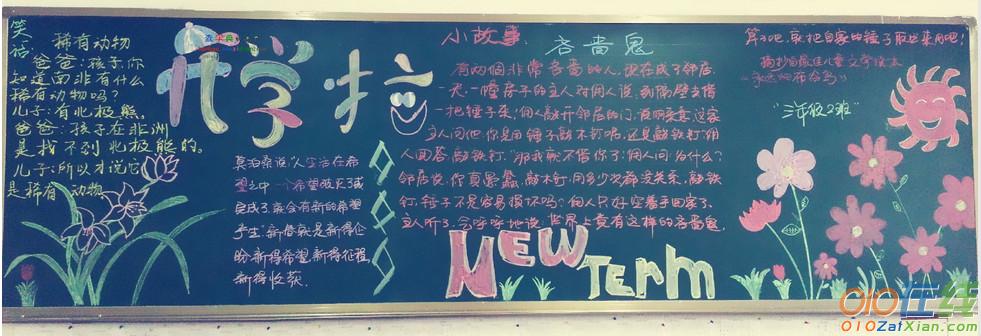 笑话 稀有动物
爸爸:孩子,你
知道南非有什么
稀有动物吗?
儿子:有北极熊。
爸爸:孩子在非洲
是找不到北极熊的。
儿子:所以才说它
是稀有动物
开学啦
莫泊桑说:"人生活在希
望之中,一个希望破灭了或
完成了,就会有新的希望
产生,新
新得希望,新得征程,
新得收获.
小故事:
吝啬鬼
有两个非常吝啬的人,
一天,一幢房子的主人对佣人说,到隔壁去借
一把锤子来,佣人敲开邻居的门,
主人问他:你是用锤子敲木钉呢,还是敲铁钉,佣
人回答:敲铁钉,那我就不借你了,佣人问:为什么?
邻居说,你真愚蠢,敲木钉,用多少次都没关系,敲铁
钉,锤子不是容易损坏吗?佣人只好空着手回家了.
主人听了,气呼呼地说:世界上竟有这样的吝啬鬼.
NEW Term
算了吧,就把自家的锤子取出来用吧!
"三年级2班"
010在线
010ZaiXian.com